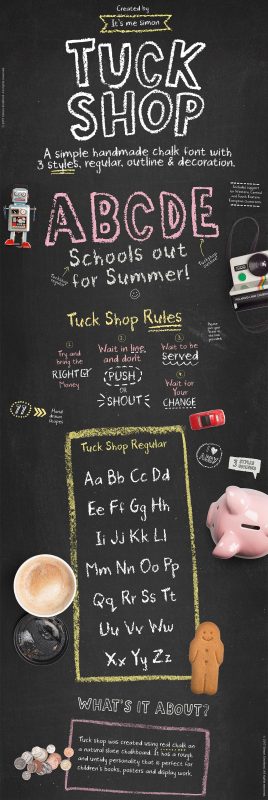 Created by
It's me simon
TUCK
SHOP
A simple handmade chalk font with
3 styles, regular, outline & decoration.
Includes support
for Western, Central
and South Eastern
European Languages
ABCDE
Schools out
for Summer!
Tuck Shop Rules
1
Try and
bring the
RIGHT
Money
2
Wait in line
and don't
PUSH
or
SHOUT
3
Wait to be
SERVED
4
Wait for
Your
CHANGE
Hand
drawn
shapes
3 STYLES
Tuck Shop Regular
Aa Bb Cc Dd
Ee Ff Gg Hh
Ii Jj Kk Ll
Mm Nn Oo Pp
Qq Rr Ss Tt
Uu Vv Ww
Xx Yy Zz
WHAT'S IT ABOUT?
Tuck shop was created using real chalk on
a natural slate chalkboard. It has a rough
and untidy personality that is perfect for
children's books, posters and display work.